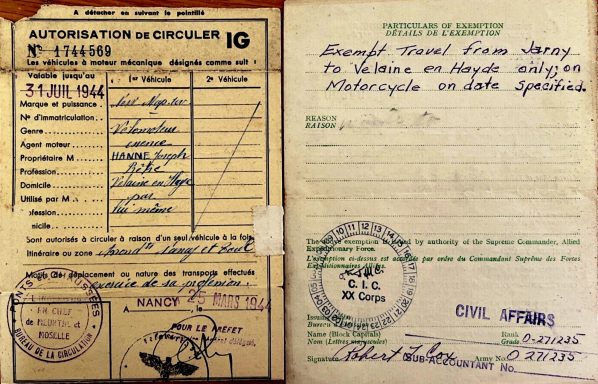 A détacher en suivant le pointillé
AUTORISATION DE CIRCULER IG
N° 1744569
Les véhicules à moteur mécanique désignés comme suit :
Valable jusqu'au
1er Véhicule
2e Véhicule
31 JUIL 1944
Marque et puissance
N° d'immatriculation
Genre
Vélomoteur
Agent moteur
essence
Propriétaire M
HANNE Joseph
Prêtre
Domicile
Velaine en Haye
Utilisé par M
par
fession
lui même
nicile
Sont autorisés à circuler à raison d'un seul véhicule à la fois
Itinéraire ou zone
Nancy et Toul
Motifs du déplacement ou nature des transports effectués
exercice de sa profession
A NANCY le 25 MARS 1944
POUR LE PREFET
PONTS CHAUSSÉES
EN CHEF
DE MEURTHE ET
MOSELLE
BUREAU DE LA CIRCULATION
PARTICULARS OF EXEMPTION
DÉTAILS DE L'EXEMPTION
Exempt Travel from Jarny
to Velaine en Hayde only; on
Motorcycle on date specified.
REASON
RAISON
The above exemption is granted by authority of the Supreme Commander, Allied
Expeditionary Force.
L'exemption ci-dessus est accordée par ordre du Commandant Suprême des Forces
Expéditionnaires Alliées.
C. I. C.
XX Corps
CIVIL AFFAIRS
Name (Block Capitals)
Nom (Lettres majuscules)
Rank
Grade
O-271235
Signature
Robert T Cox
Army No.
O 271235
SUB-ACCOUNTANT No.